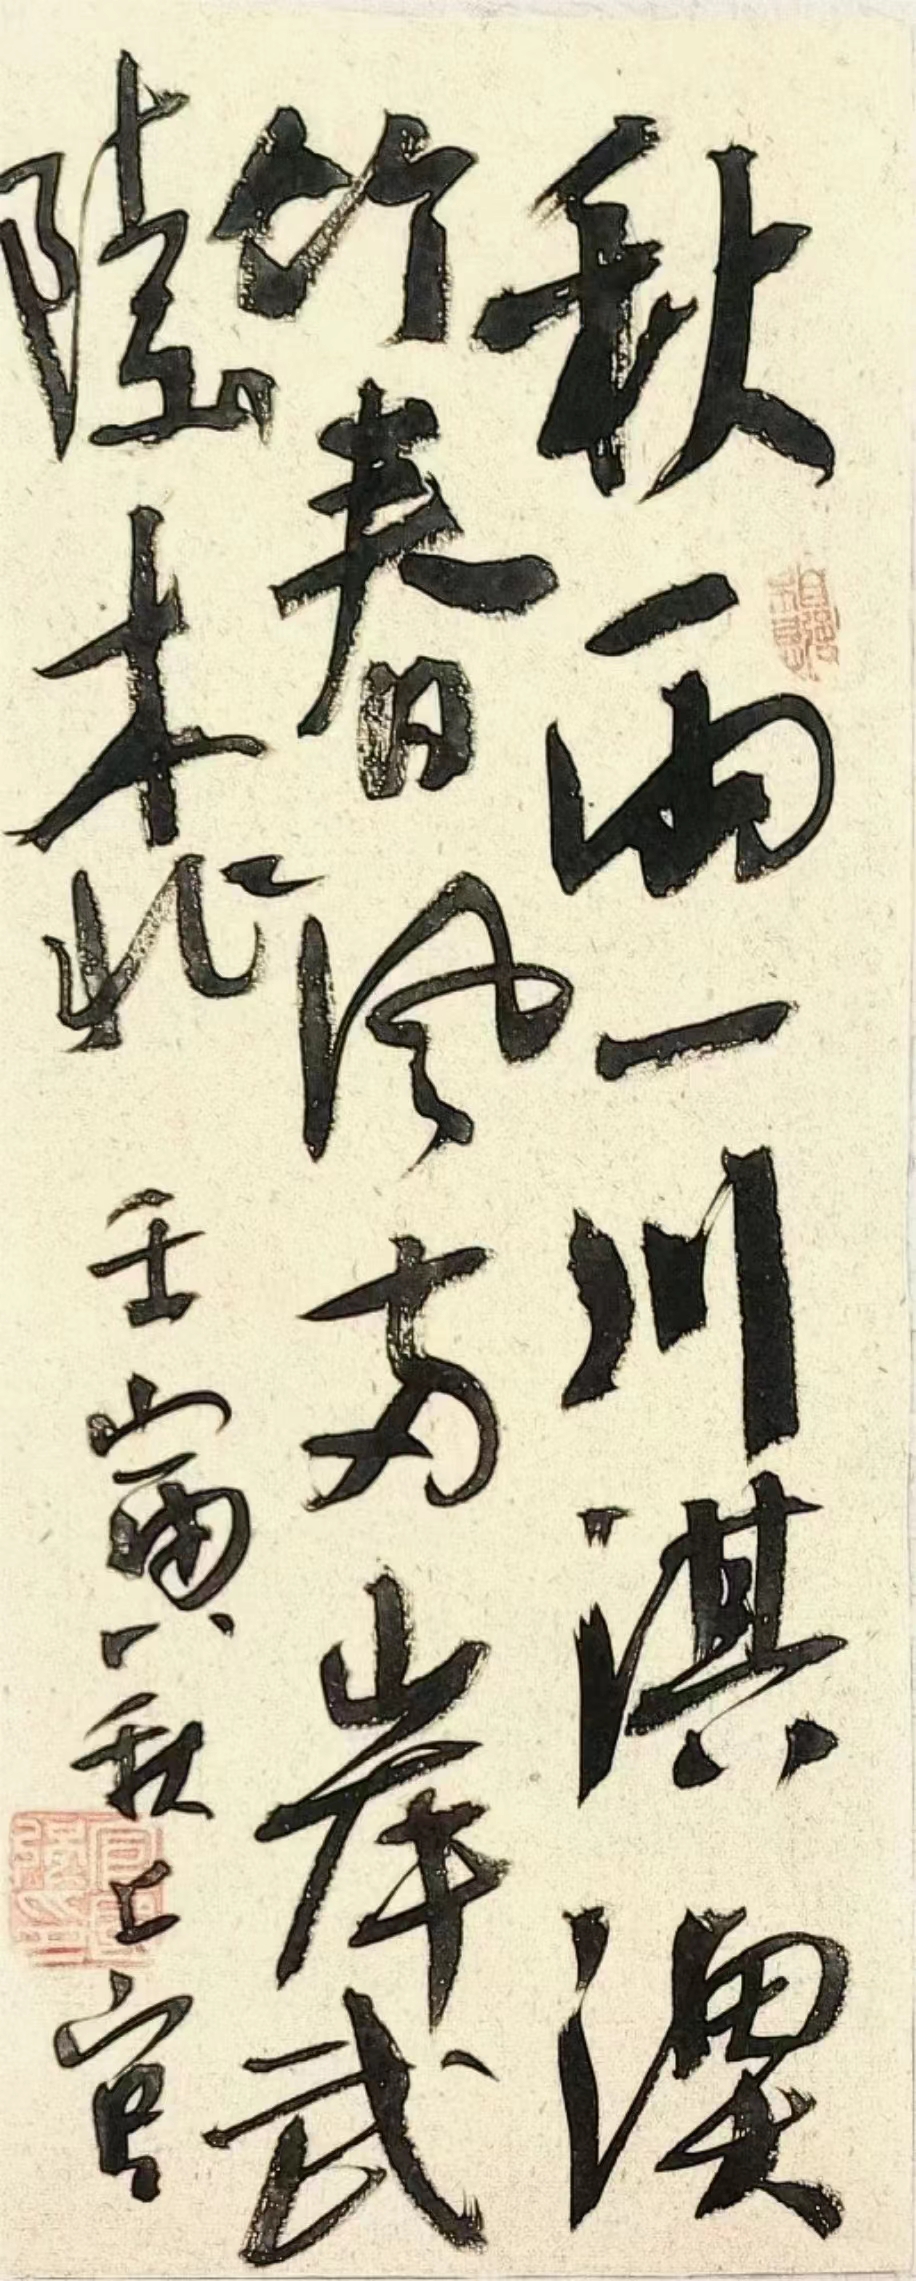 秋雨一川淇澳
竹春風兩岸武
陵桃 壬寅秋上官